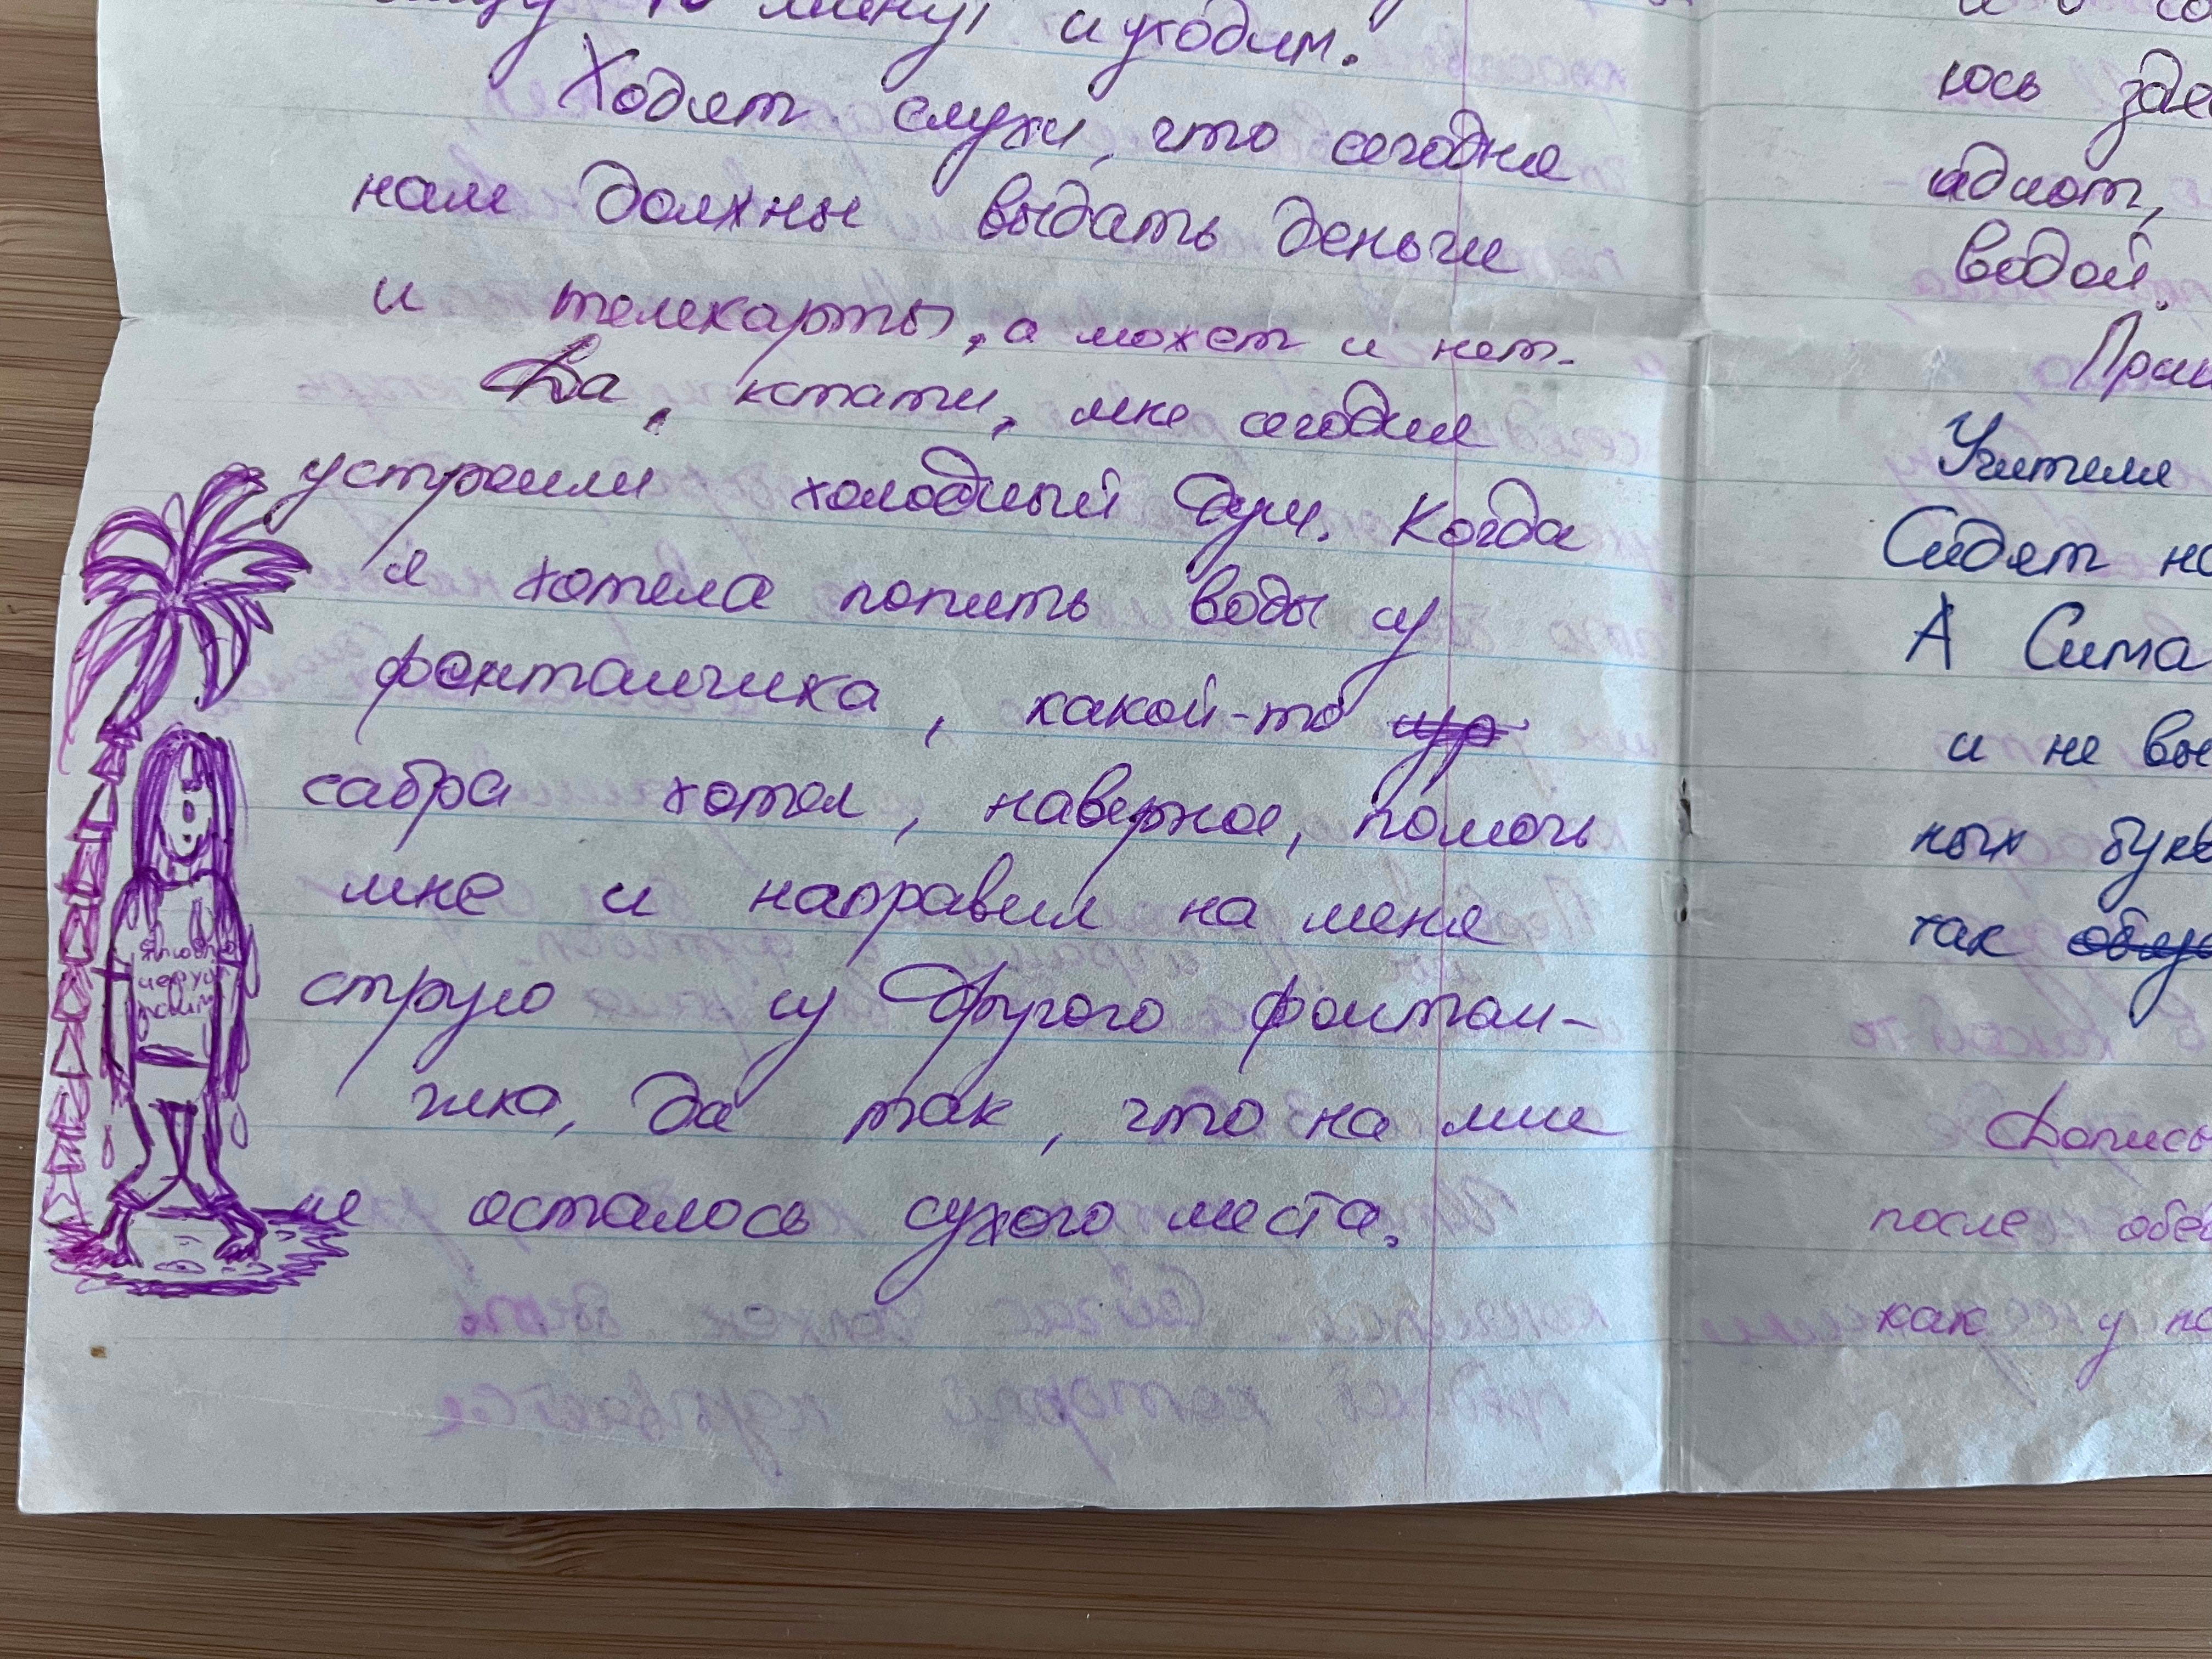 минут и уходим.
Ходят слухи, что сегодня
нам должны выдать деньги
и телекарты, а может и нет.
Да, кстати, мне сегодня
устроили холодный душ. Когда
я хотела попить воды из
фонтанчика, какой-то
сабра хотел, наверное, помочь
мне и направил на меня
струю из другого фонтан-
чика, да так, что на мне
не осталось сухого места.
юсь зде
адиот,
водой.
Учителя
Сидят на
А Сима
и не вы
ных букв
так
Допись
после обед
как у на